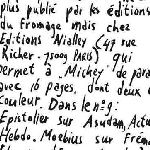 plus publié par les éditions
du fromage mais chez
Editions Nialley (47 rue
Richer. 75009 PARIS) qui
permet à "Mickey" de para
avec 16 pages, dont deux e
couleur. Dans le n°9:
Epistolier sur Asudam, Actu
Hebdo. Moebius sur Frém